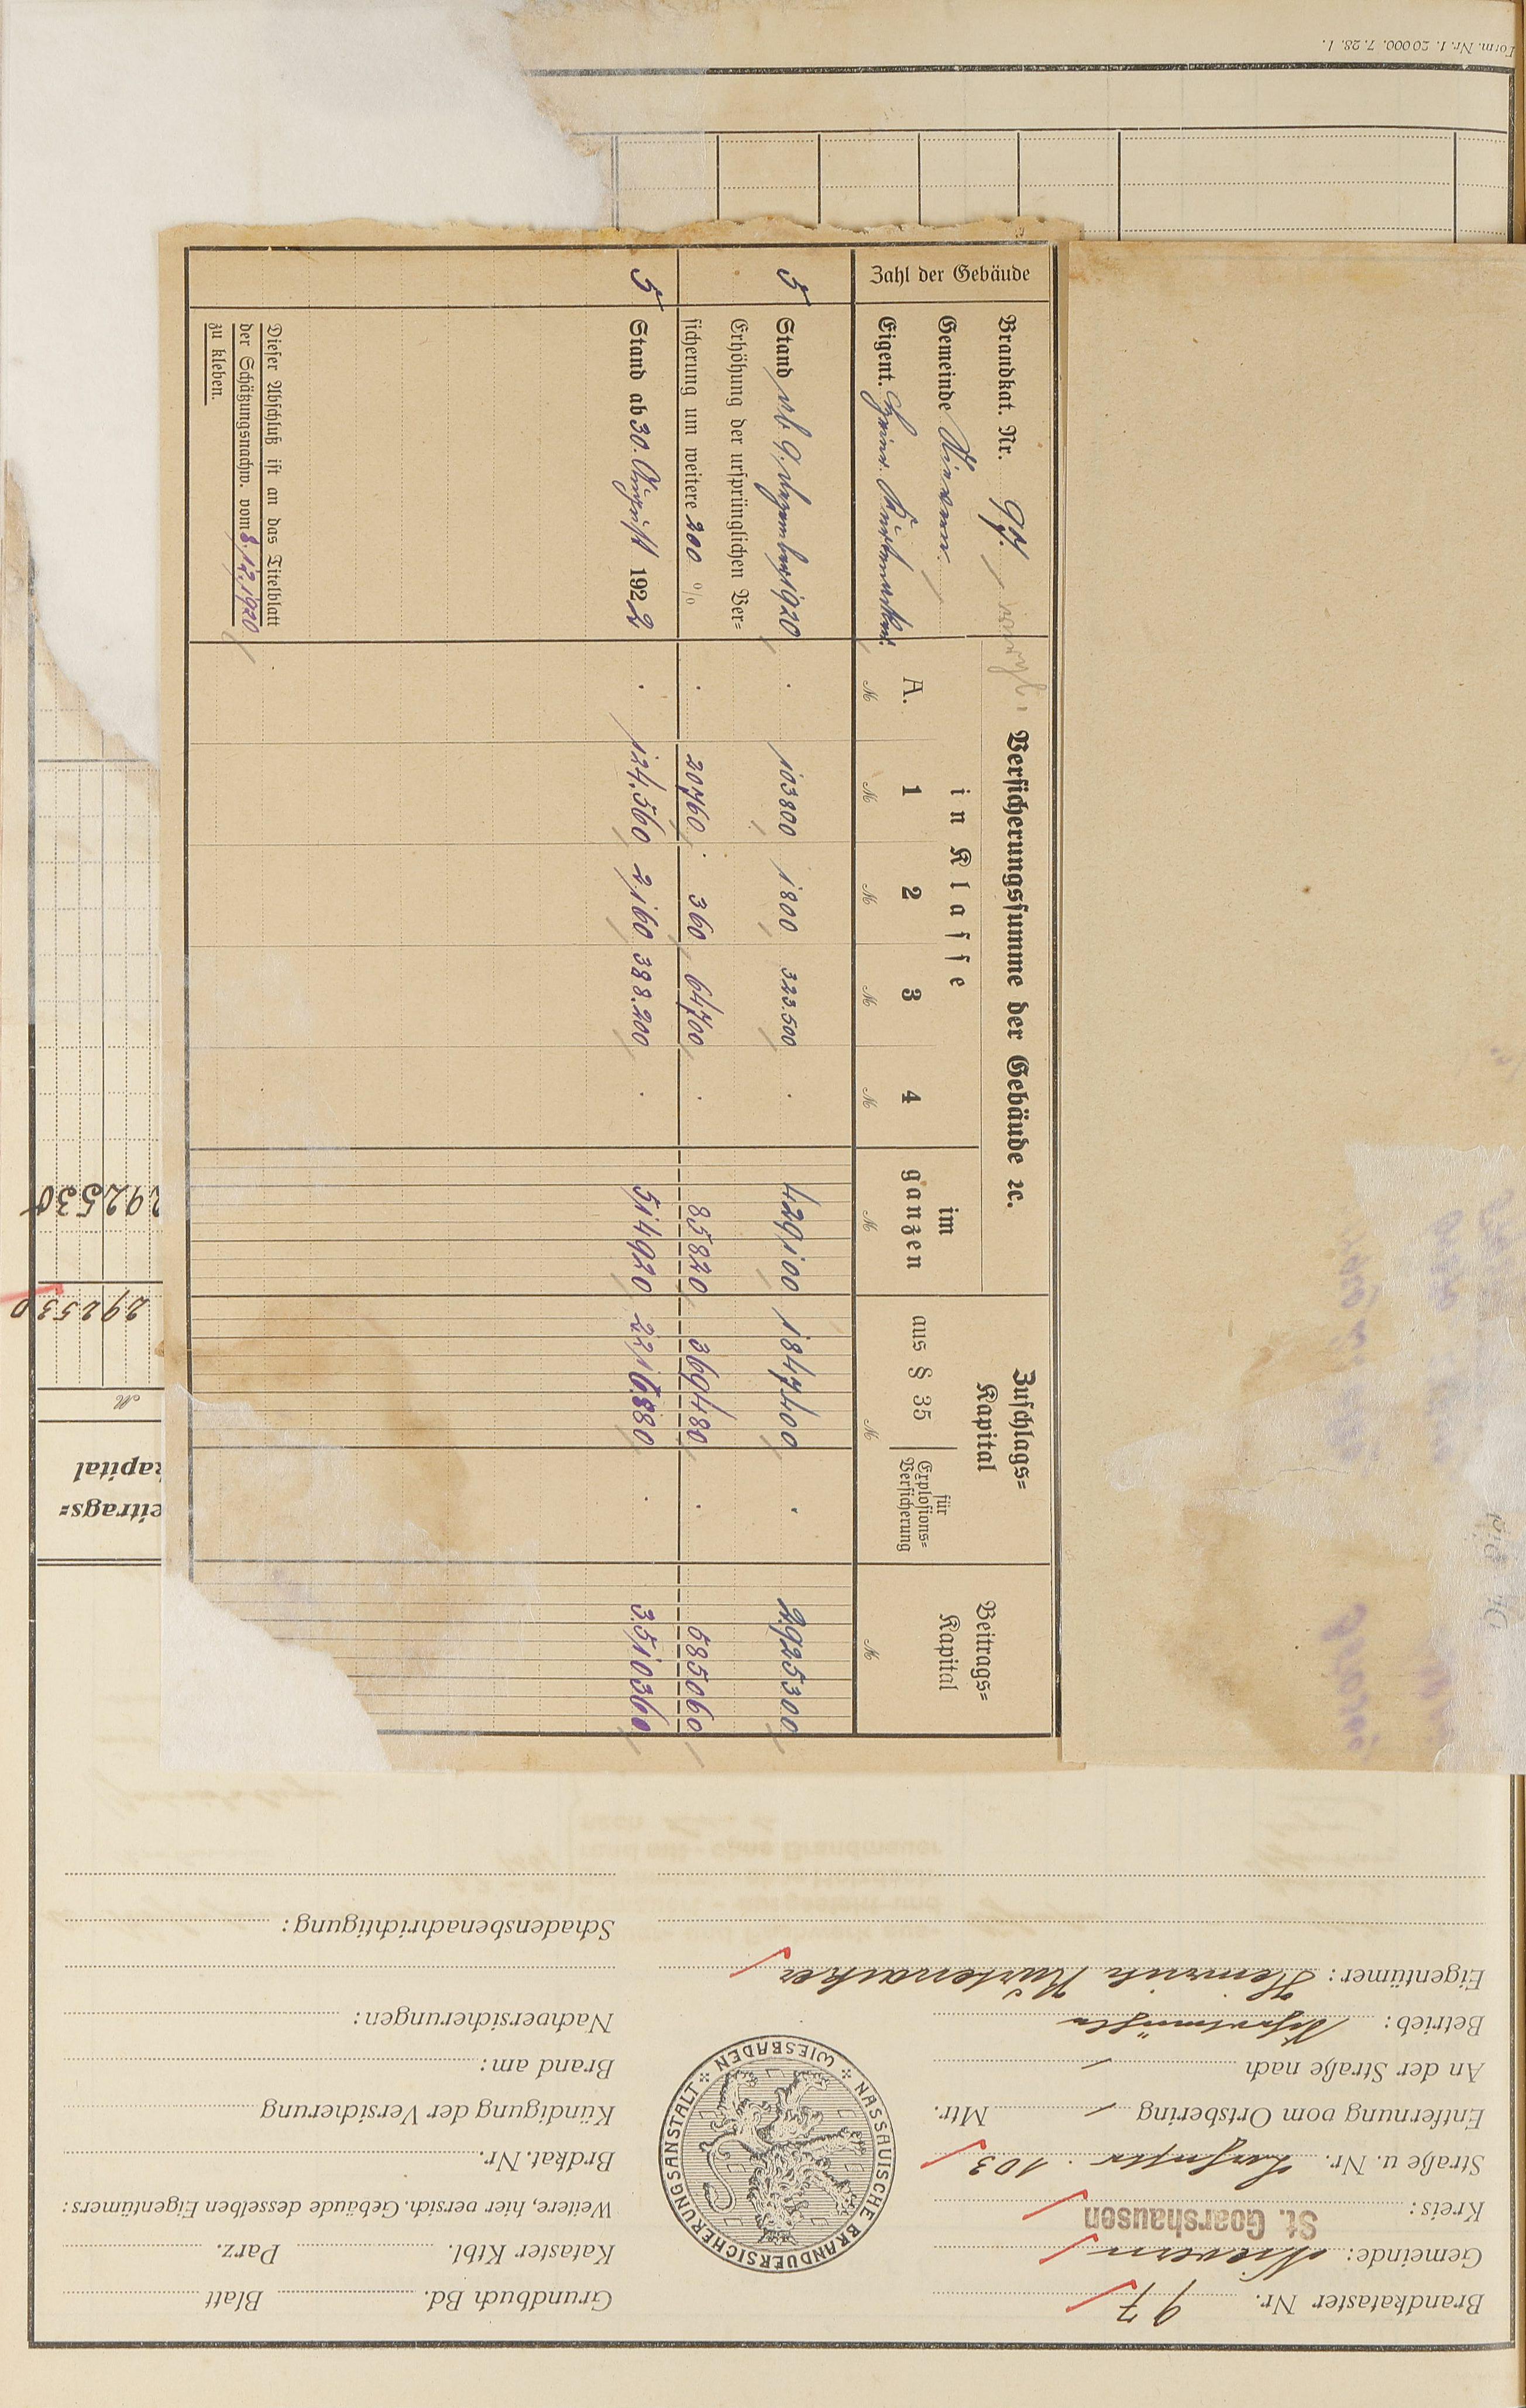 Brandkataster Nr. 97
Gemeinde: Nievern
Kreis: St. Goarshausen
Straße u. Nr. 103
Entfernung vom Ortsbering / Mtr.
An der Straße nach /
Betrieb:
Eigentümer: Heinrich Kürtenacker
NASSAUISCHE BRANDVERSICHERUNGSANSTALT
WIESBADEN
Grundbuch Bd. Blatt
Kataster Ktbl. Parz.
Weitere, hier versich. Gebäude desselben Eigentümers:
Brdkat. Nr.
Kündigung der Versicherung
Brand am:
Nachversicherungen:
Schadensbenachrichtigung:
eitrags=
kapital
M
292530
292530
Form. Nr. 1. 20000. 7. 28. I.
Zahl der Gebäude
Brandkat. Nr. 97.
Gemeinde Nievern
Eigent. Heinr. Kürtenacker
Versicherungssumme der Gebäude ꝛc.
in Klasse
A. 1 2 3 4
im
ganzen
Zuschlags=
Kapital
aus § 35
für
Explosions=
Versicherung
Beitrags=
Kapital
M M M M M M M M
5 Stand ab 9. Dezember 1920 . 103800 1800 323.500 . 429100 1847400 . 2925300
Erhöhung der ursprünglichen Ver=
sicherung um weitere 200 % . 20760 360 64700 . 85820 369480 . 585060
5 Stand ab 30. August 1922 . 124.560 2,160 388.200 . 514920 2216880 . 3.510360
Dieser Abschluß ist an das Titelblatt
der Schätzungsnachw. vom 8.12.1920
zu kleben.